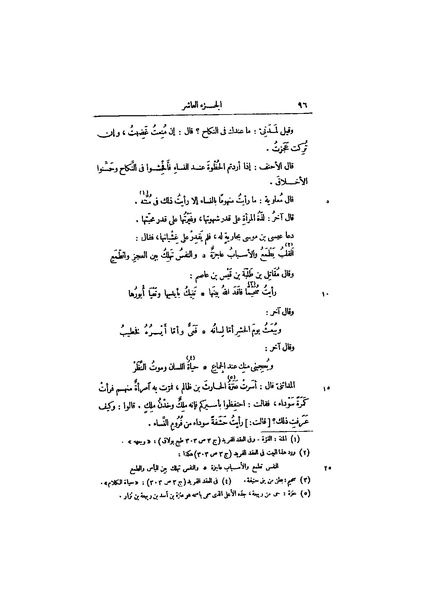 ٩٦ الجزء العاشر
وقيل لمَدَنىّ: ما عندك فى النكاح؟ قال: إن مُنِعتُ غَضِبتُ، وإن
تُركت عَجَزتُ.
قال الأحنف: إذا أردتم الحُظْوة عند النساء فأَفحِشوا فى النكاح وحَسِّنوا
الأخلاق.
٥ قال مُعاوية: ما رأيتُ منهومًا بالنساء إلا رأيتُ ذلك فى مُنَّته (١).
قال آخر: لذّةُ المرأة على قدر شهوتها، وغَيْرتُها على قدر محبّتها.
دعا عيسى بن موسى بجارية له، فلم يقدِر على غِشْيانها، فقال:
القلبُ يَطمَعُ والأسبابُ عاجزةٌ (٢) * والنفسُ تَهلِكُ بين العجز والطمعِ
وقال مُقاتِل بن طَلَبة بن قَيْس بن عاصم:
١٠ رأيتُ سُحَيْمًا (٣) فاقَدَ اللهُ بينَها * تَنِيكُ بأيديها وتَعْيَا أُيورُها
وقال آخر:
ويُبعَثُ يومَ الحشر أمّا لسانُه * فَعَىٌّ وأمّا أَيْرُه فخَطيبُ
وقال آخر:
ويُعجِبنى منكِ عند الجِماع * حياةُ اللسان (٤) وموتُ النَّظَرْ
١٥ المدائنىّ قال: أَسَرتْ عَنَزةُ (٥) الحارثَ بن ظالم، فمرّت به آمرأةٌ منهم فرأتْ
كَمَرةً سَوْداء، فقالت: احتفِظوا بأسيركم فإنه مَلِكٌ وخِدْنُ ملِكٍ. قالوا: وكيف
عَرَفتِ ذلك؟ [قالت:] رأيتُ حَشَفةً سوداء من فُرُوم النساء.
(١) المنة: القوّة. وفى العقد الفريد (ج ٣ ص ٣٠٣ طبع بولاق): «وجهه».
(٢) ورد هذا البيت فى العقد الفريد (ج ٣ ص ٣٠٣) هكذا:
٢٥ النفس تطمع والأسباب عاجزة * والنفس تهلك بين اليأس والطمع
(٣) سحيم: بطن من بنى حنيفة. (٤) فى العقد الفريد (ج ٣ ص ٣٠٣): «حياة الكلام».
(٥) عنزة: حى من ربيعة، جدّه الأعلى الذى سمى باسمه هو عنزة بن أسد بن ربيعة بن نزار.